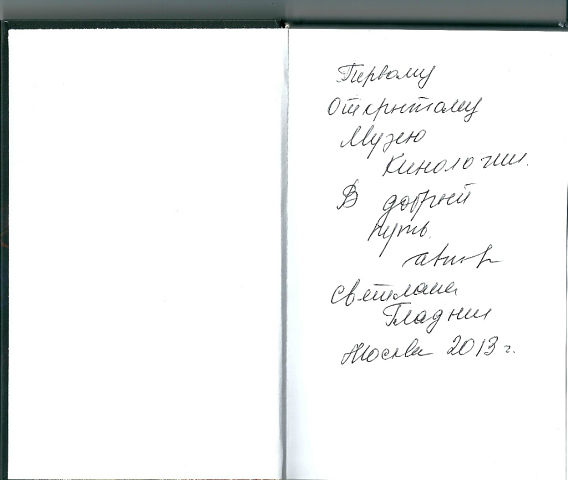 Первому
Открытому
Музею
Кинологии.
В добрый
путь.
автор
Светлана
Гладыш
Москва 2013 г.